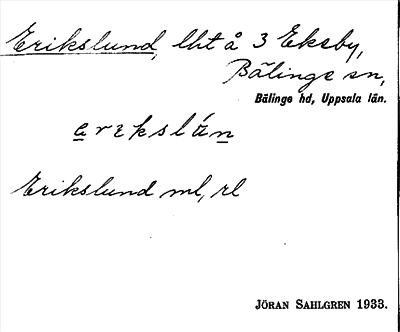 Erikslund, lht å 3 Ekeby,
Bälinge sn,
Bälinge hd, Uppsala län.
Erikslund ml, rl
JÖRAN SAHLGREN 1933.